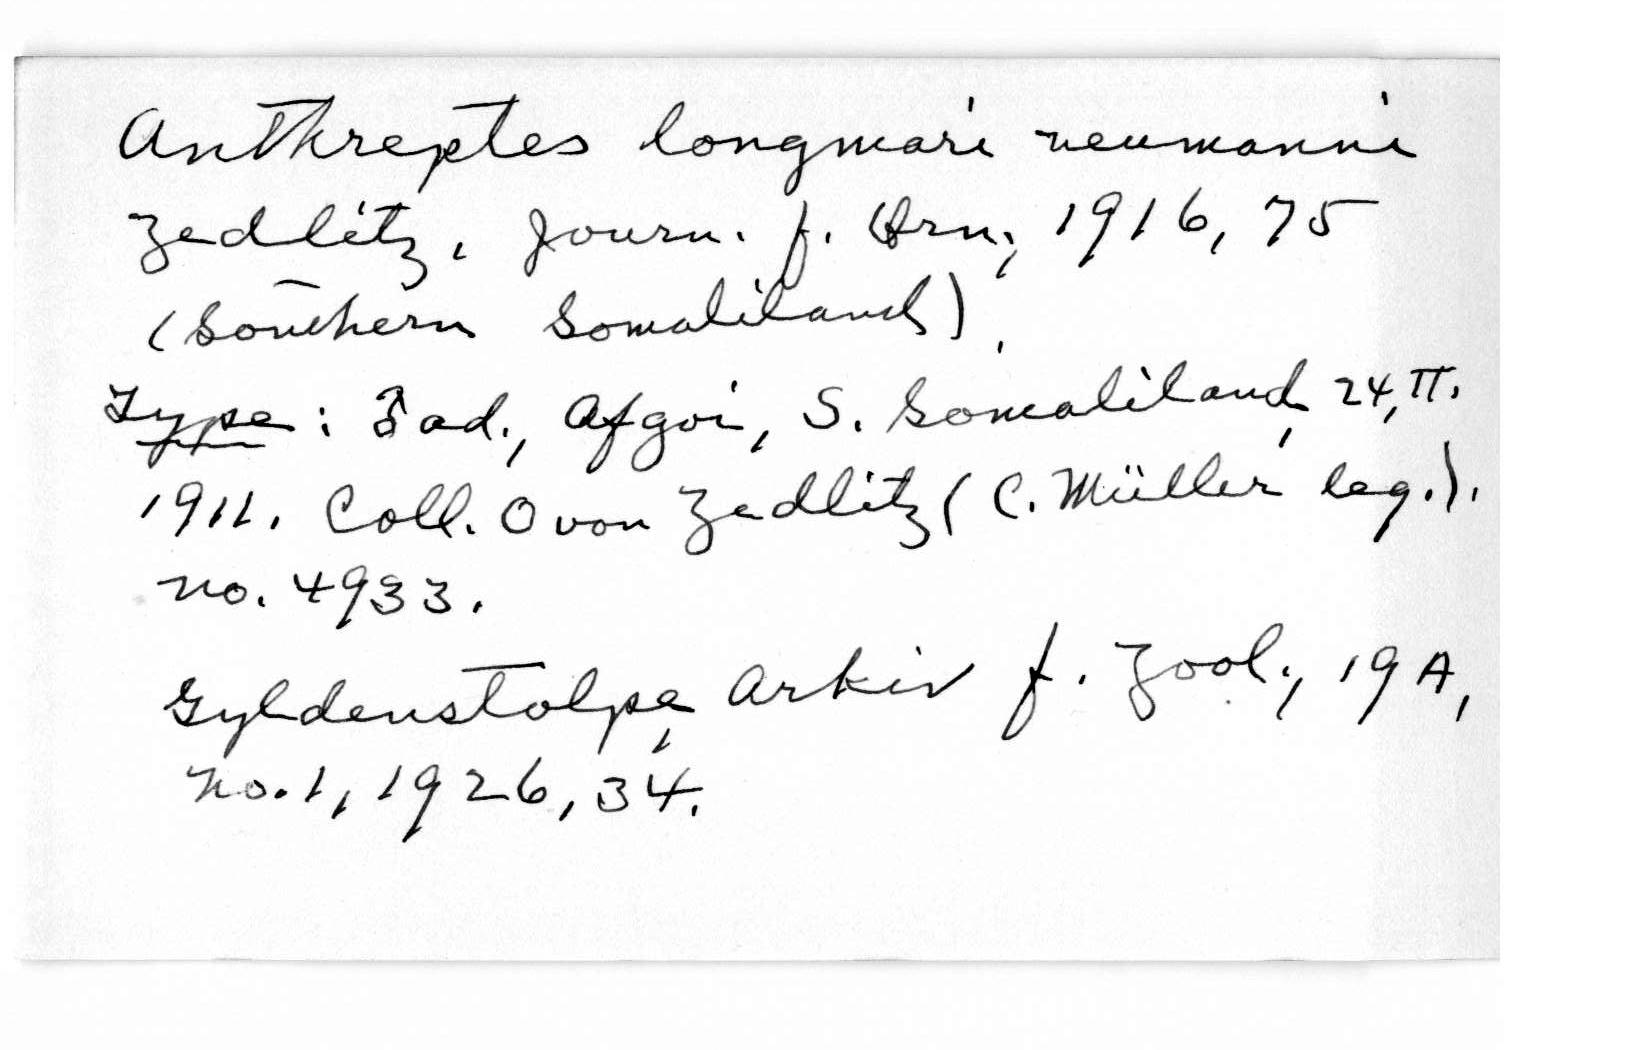 Anthreptes longmari neumanni
Zedlitz, Journ. f. Orn., 1916, 75
(Southern Somaliland).
Type: ♂ ad., Afgoi, S. Somaliland, 24, II.
1911. Coll. O von Zedlitz (C. Müller leg.).
no. 4933.
Gyldenstolpe, Arkiv f. Zool., 19A,
no. 1, 1926, 34.